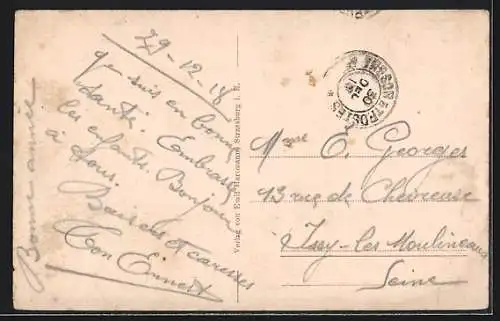 29-12-18
que suis en bonne
santé. Embrasse
les enfants. Bonjour
à tous.
Baisers et caresses
Ton Ernest
Bonne année
Verlag von Emil Hartmann, Strassburg i. E.
TRESOR ET POSTES
30 DEC
Mme E. Georges
13 rue de Chevreuse
Issy-les Moulineaux
Seine